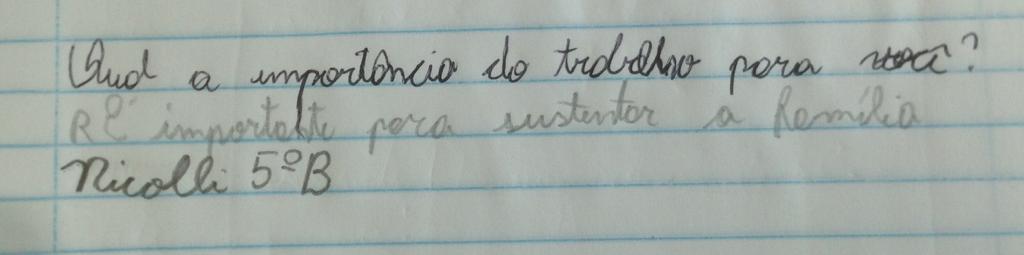 Qual a importância do trabalho para você?
R É importante para sustentar a família
Nicolli 5ºB